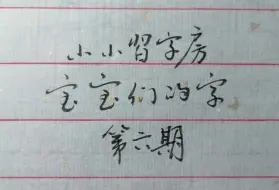 小小習字房
宝宝们的字
第六期